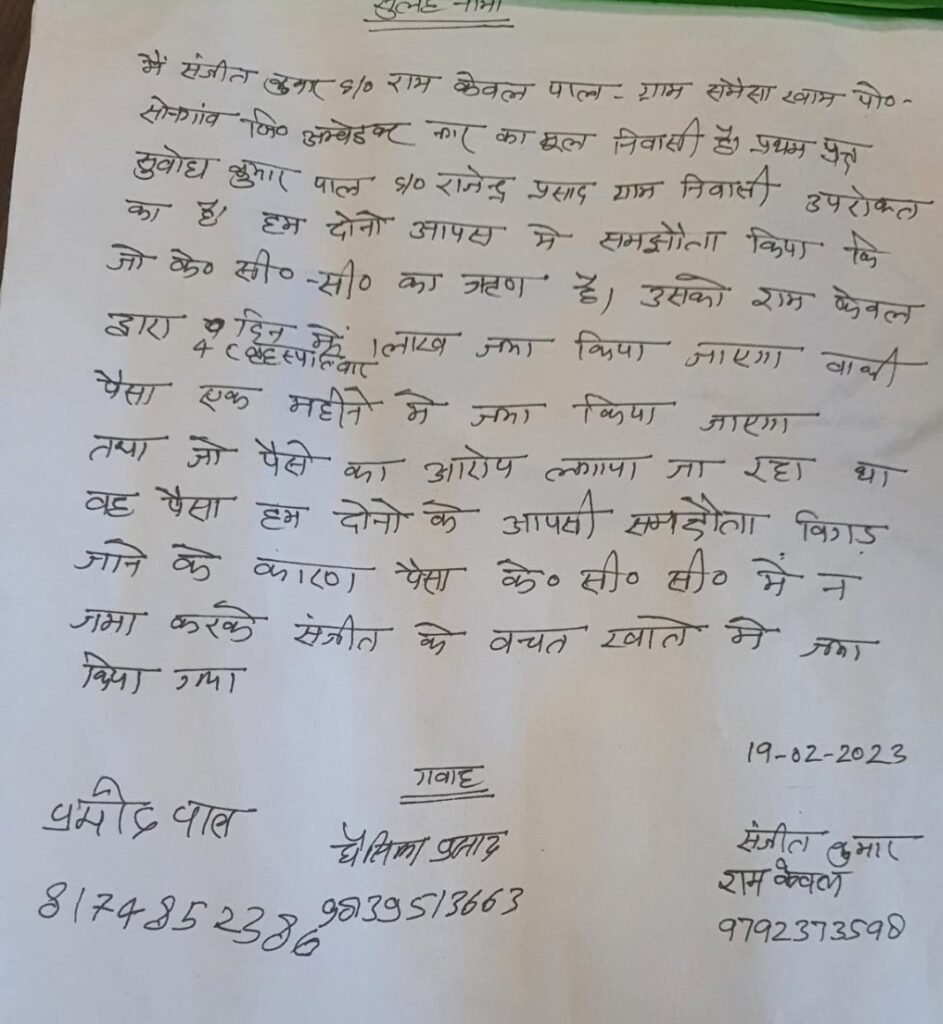 सुलह नामा
मैं संजीत कुमार S/0 राम केवल पाल - ग्राम समैसा खाम पो०-
सोनगांव जि० अम्बेडकर नगर का मूल निवासी है। प्रथम पक्ष
सुवोध कुमार पाल S/0 राजेन्द्र प्रसाद ग्राम निवासी उपरोक्त
का है। हम दोनो आपस मे समझौता किया कि
जो के० सी० सी० का ऋण है। उसको राम केवल
द्वारा 4 दिन में 1 लाख जमा किया जाएगा वाकी
4 (बृहस्पतिवार
पैसा एक महीने मे जमा किया जाएगा
तथा जो पैसे का आरोप लगाया जा रहा था
वह पैसा हम दोनो के आपसी समझौता विगड़
जाने के कारण पैसा के० सी० सी० में न
जमा करके संजीत के वचत खाते मे जमा
किया गया
19-02-2023
गवाह
प्रमोद पाल
प्रसाद
संजीत कुमार
राम केवल
8174852386
9839513663
9792373598